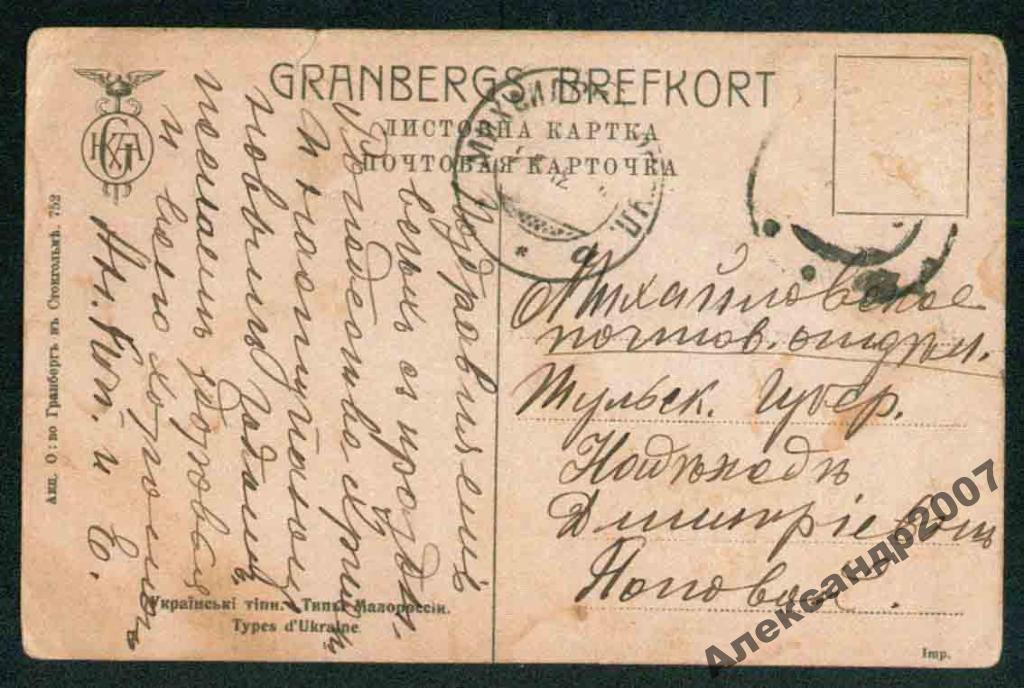 GRANBERGS BREFKORT
ЛИСТОВНА КАРТКА
ПОЧТОВАЯ КАРТОЧКА
Акц. О: во Гранбергъ въ Стокгольмѣ. 752
Поздравляемъ
всѣхъ съ праздн.
Рождества Хрис.
и наступающ.
новымъ годомъ
посылаемъ
и всего хорошаго
Михайловское
почтов. отдѣл.
Тульск. Губер.
Надеждѣ
Дмитріевнѣ
Поповой.
Українські тіпи. Типы Малороссіи.
Types d'Ukraine
Imp.
Александр2007